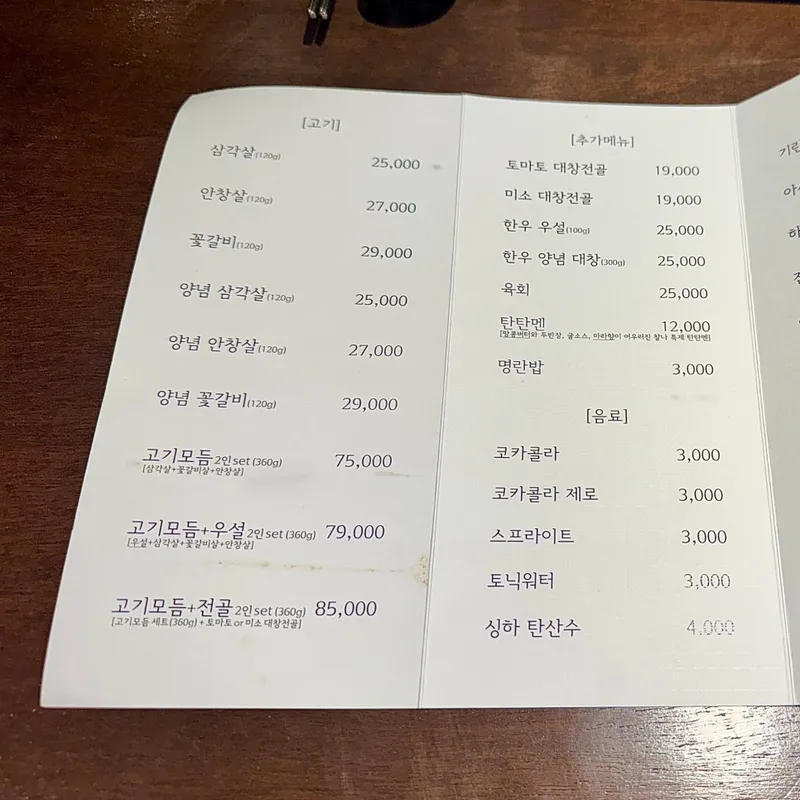 [고기]
삼각살(120g) 25,000
안창살(120g) 27,000
꽃갈비(120g) 29,000
양념 삼각살(120g) 25,000
양념 안창살(120g) 27,000
양념 꽃갈비(120g) 29,000
고기모듬 2인 set (360g) 75,000
[삼각살+꽃갈비살+안창살]
고기모듬+우설 2인 set (360g) 79,000
[우설+삼각살+꽃갈비살+안창살]
고기모듬+전골 2인 set (360g) 85,000
[고기모듬 세트(360g) + 토마토 or 미소 대창전골]
[추가메뉴]
토마토 대창전골 19,000
미소 대창전골 19,000
한우 우설(100g) 25,000
한우 양념 대창(300g) 25,000
육회 25,000
탄탄멘 12,000
[땅콩버터와 두반장, 굴소스, 마라향이 어우러진 찰나 특제 탄탄멘]
명란밥 3,000
[음료]
코카콜라 3,000
코카콜라 제로 3,000
스프라이트 3,000
토닉워터 3,000
싱하 탄산수 4,000